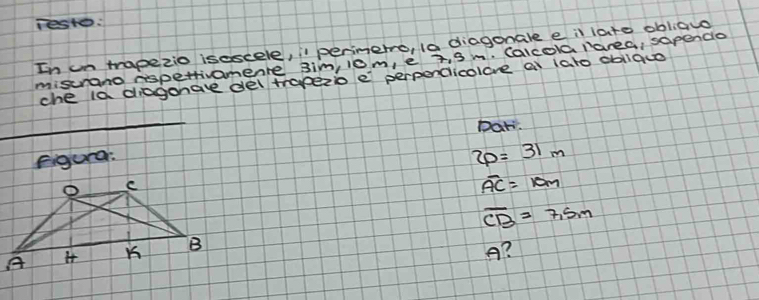 Testo:
In un trapezio isoscele, il perimetro, la diagonale e il lato obliquo
misurano rispettivamente 31m, 10 m, e 7,5 m. Calcola l'area, sapendo
che la diagonale del trapezio è perpendicolare al lato obliquo
Dati:
Figura:
2P = 31 m
D C
AC = 10m
CB = 7,5m
A H K B
A?